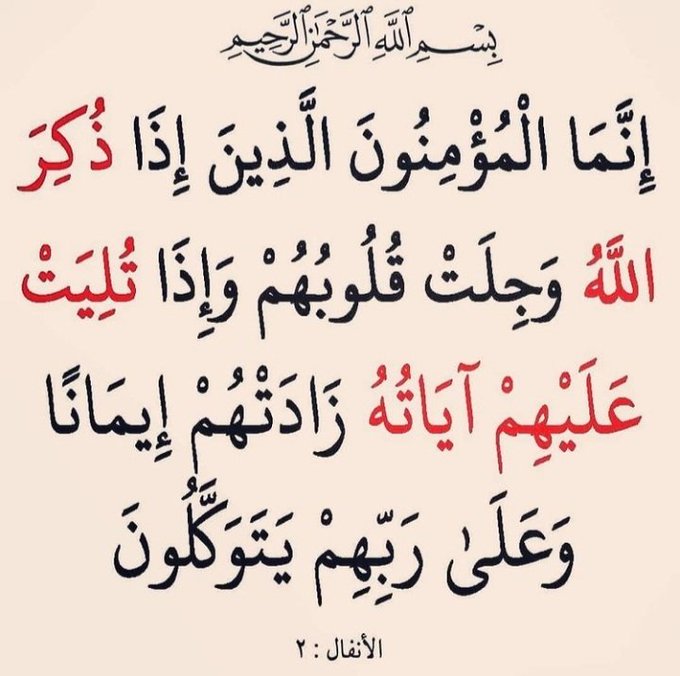 بِسْمِ ٱللَّهِ ٱلرَّحْمَٰنِ ٱلرَّحِيمِ
إِنَّمَا الْمُؤْمِنُونَ الَّذِينَ إِذَا ذُكِرَ
اللَّهُ وَجِلَتْ قُلُوبُهُمْ وَإِذَا تُلِيَتْ
عَلَيْهِمْ آيَاتُهُ زَادَتْهُمْ إِيمَانًا
وَعَلَىٰ رَبِّهِمْ يَتَوَكَّلُونَ
الأنفال : ٢